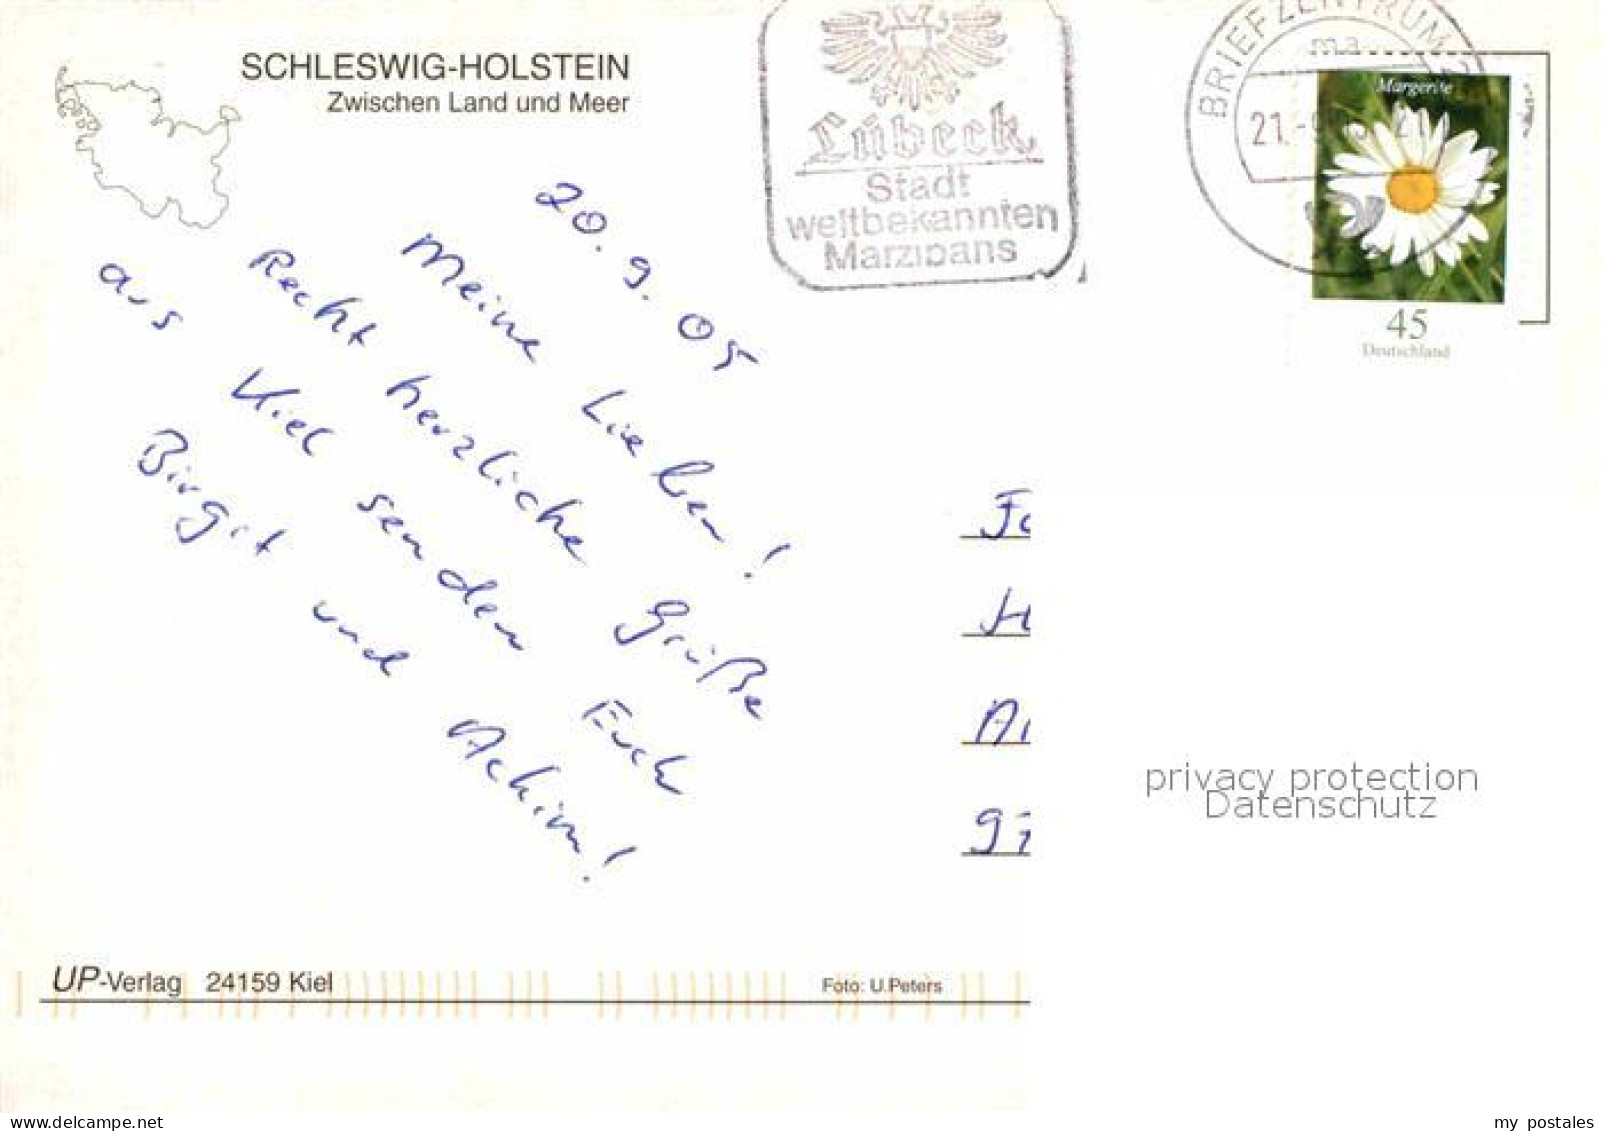 SCHLESWIG-HOLSTEIN
Zwischen Land und Meer
Lübeck
Stadt
weltbekannten
Marzipans
BRIEFZENTRUM
ma
21.-9
21
Margerite
45
Deutschland
20.9.05
Meine Lieben!
Recht herzliche Grüße
aus Kiel senden Euch
Birgit und Achim!
Fa
H
privacy protection
Datenschutz
UP-Verlag 24159 Kiel
Foto: U.Peters
delcampe.net
my postales